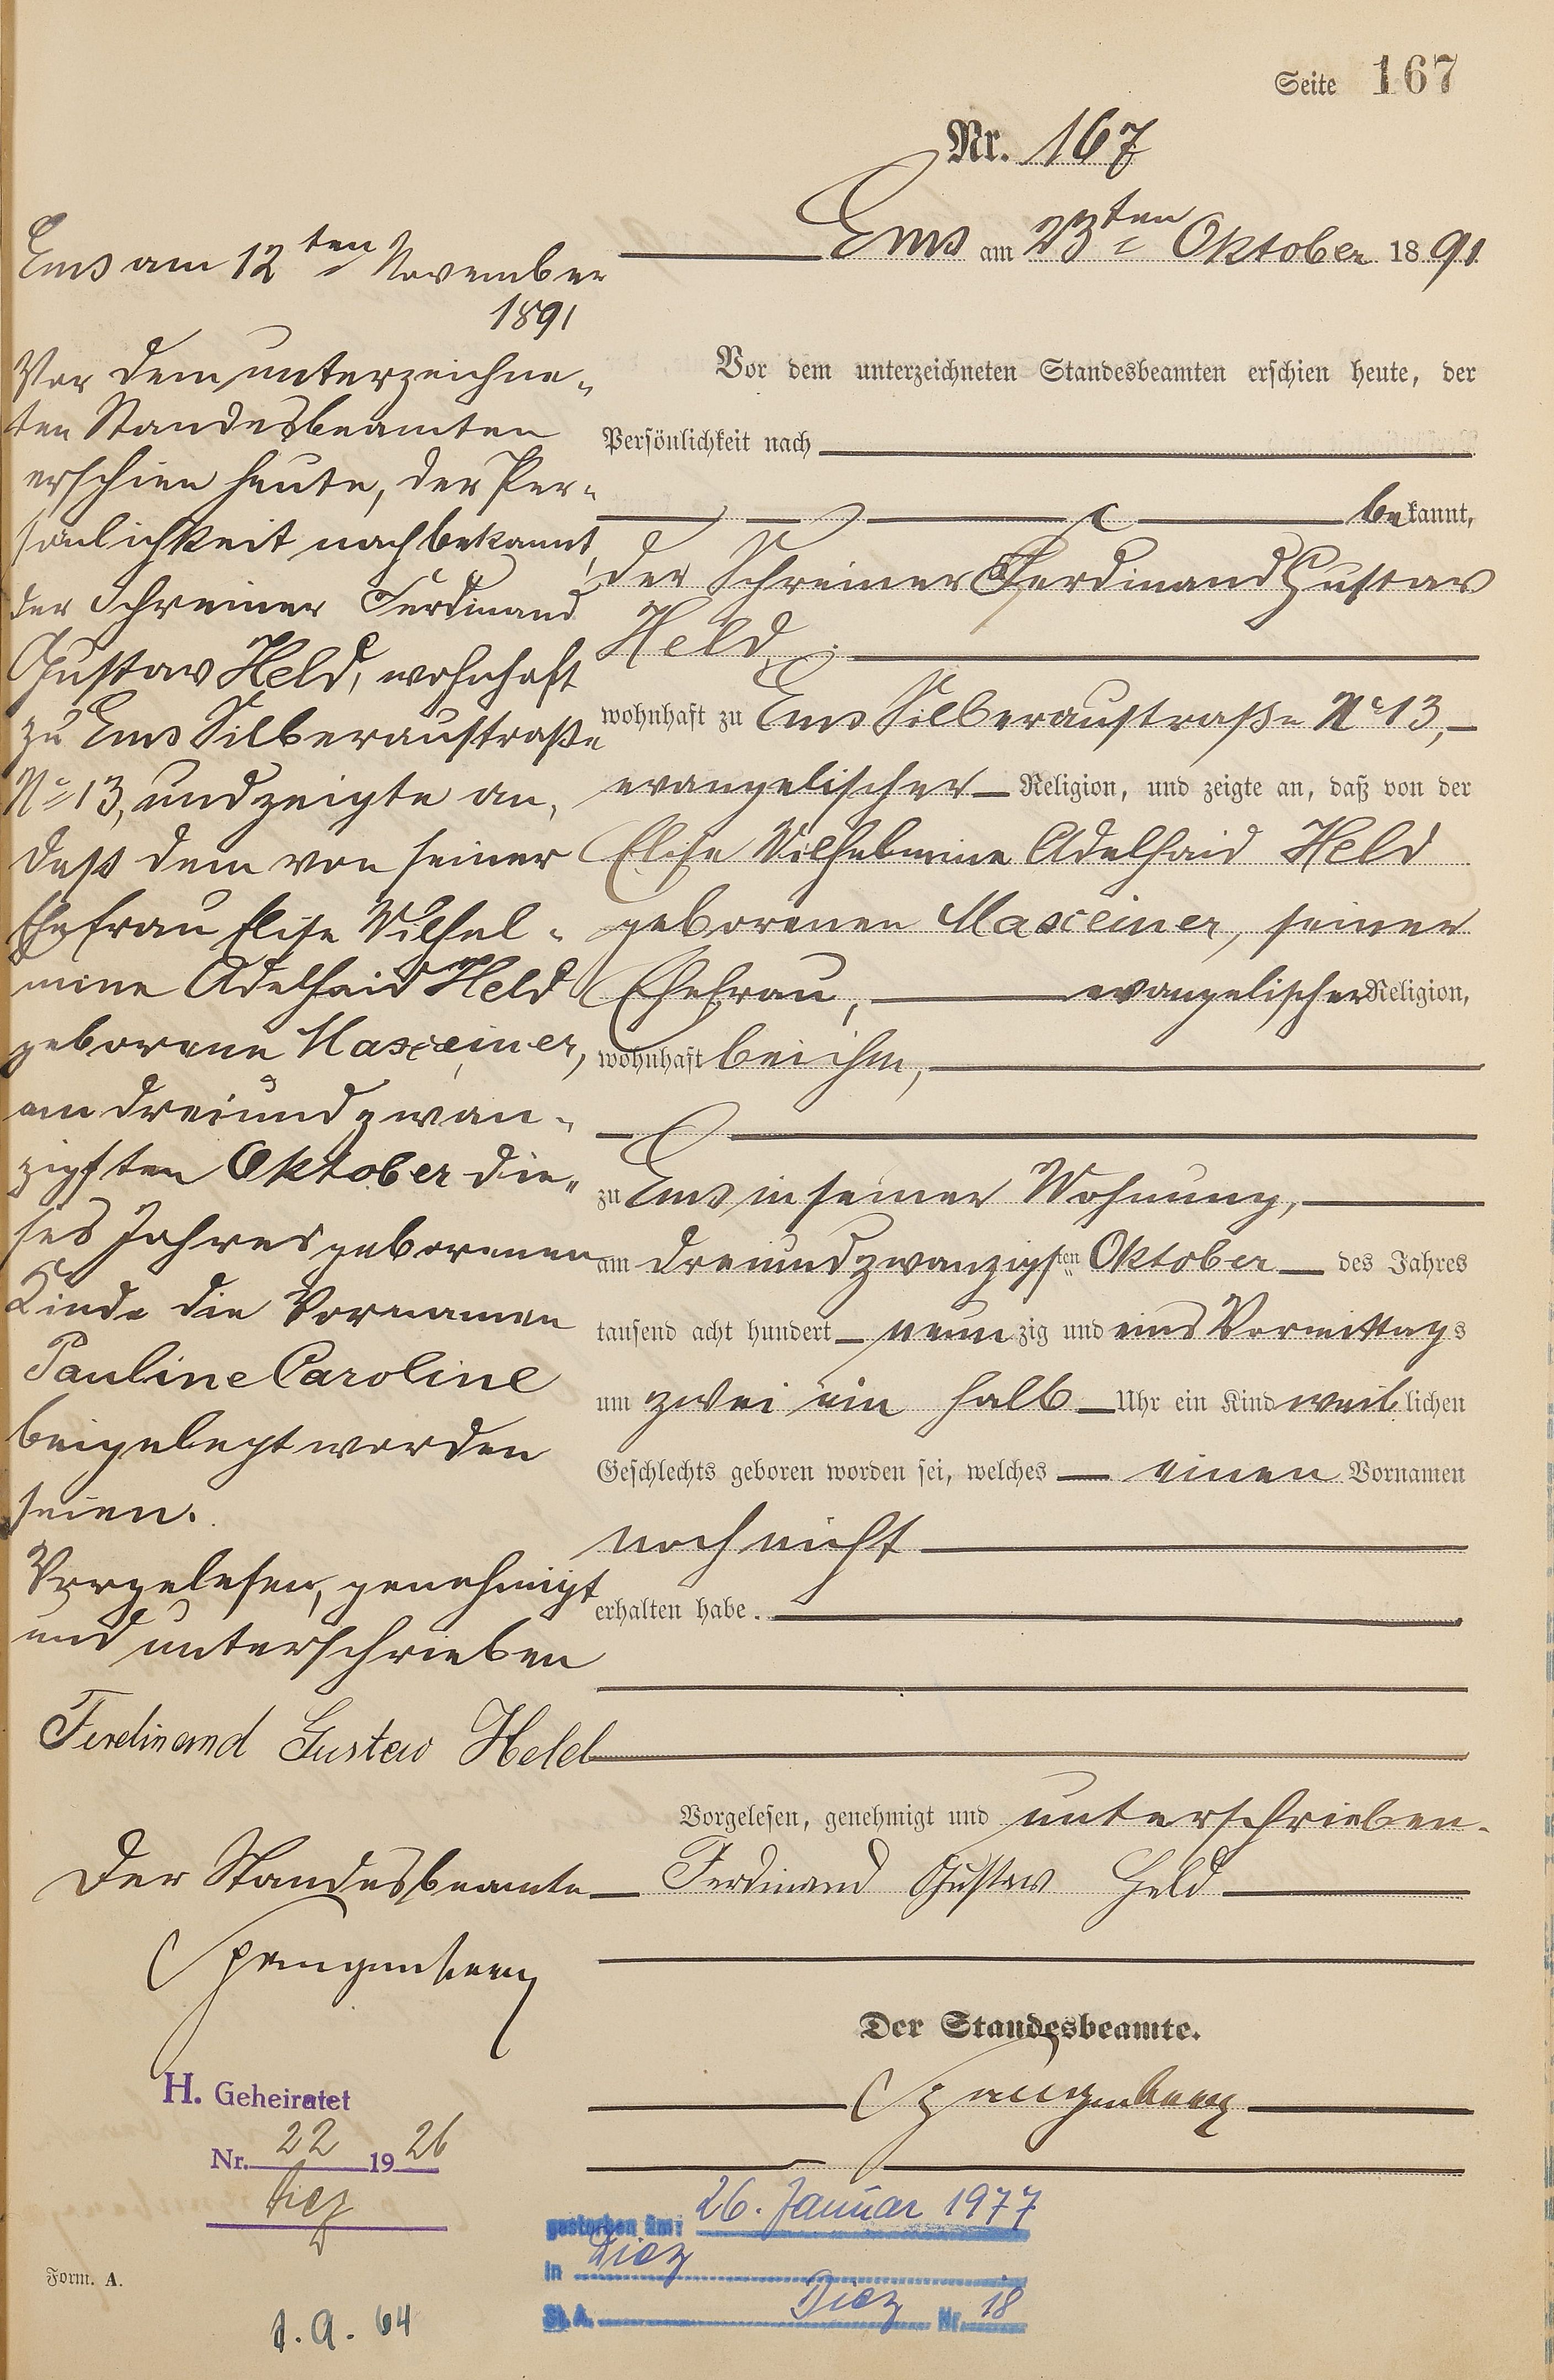 Seite 167
Nr. 167
Ems am 23ten Oktober 1891
Vor dem unterzeichneten Standesbeamten erschien heute, der
Persönlichkeit nach
bekannt,
der Schreiner Ferdinand Gustav
Held,
wohnhaft zu Ems Silberaustraße No 13,
evangelischer Religion, und zeigte an, daß von der
Elise Wilhelmine Adelhaid Held
geborenen Maxeiner, seiner
Ehefrau, evangelischer Religion,
wohnhaft bei ihm,
zu Ems in seiner Wohnung,
am dreiundzwanzigsten Oktober des Jahres
tausend acht hundert neunzig und eins Vormittags
um zwei ein halb Uhr ein Kind weiblichen
Geschlechts geboren worden sei, welches einen Vornamen
noch nicht
erhalten habe.
Vorgelesen, genehmigt und unterschrieben.
Ferdinand Gustav Held
Der Standesbeamte.
Spangenberg
Ems am 12ten November
1891
Vor dem unterzeichne-
ten Standesbeamten
erschien heute, der Per-
sönlichkeit nach bekannt,
der Schreiner Ferdinand
Gustav Held, wohnhaft
zu Ems Silberaustraße
No 13, und zeigte an,
daß dem von seiner
Ehefrau Elise Wilhel-
mine Adelhaid Held
geborene Maxeiner,
am dreiundzwan-
zigsten Oktober die-
ses Jahres geborenen
Kinde die Vornamen
Pauline Caroline
beigelegt worden
seien.
Vorgelesen, genehmigt
und unterschrieben
Ferdinand Gustav Held
Der Standesbeamte
Spangenberg
H. Geheiratet
Nr. 22 1926
Diez
gestorben am: 26. Januar 1977
in Diez
St.A. Diez Nr. 18
Form. A.